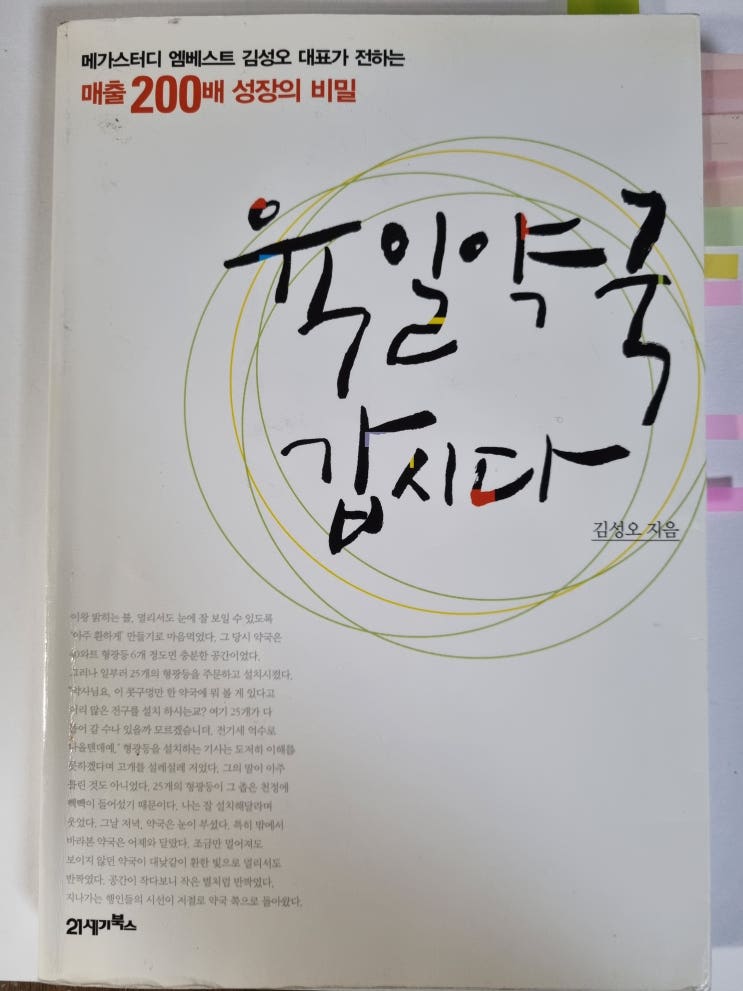 메가스터디 엠베스트 김성오 대표가 전하는
매출 200배 성장의 비밀
육일약국
갑시다
김성오 지음
이왕 밝히는 불, 멀리서도 눈에 잘 보일 수 있도록
'아주 환하게' 만들기로 마음먹었다. 그 당시 약국은
40와트 형광등 6개 정도면 충분한 공간이었다.
그러나 일부러 25개의 형광등을 주문하고 설치시켰다.
"약사님요, 이 콧구멍만 한 약국에 뭐 볼 게 있다고
이리 많은 전구를 설치 하시는교? 여기 25개가 다
들어 갈 수나 있을까 모르겠습니더. 전기세 억수로
나올텐데예." 형광등을 설치하는 기사는 도저히 이해를
못하겠다며 고개를 설레설레 저었다. 그의 말이 아주
틀린 것도 아니었다. 25개의 형광등이 그 좁은 천정에
빽빽이 들어섰기 때문이다. 나는 잘 설치해달라며
웃었다. 그날 저녁, 약국은 눈이 부셨다. 특히 밤에서
바라본 약국은 어제와 달랐다. 조금만 멀어져도
보이지 않던 약국이 대낮같이 환한 빛으로 멀리서도
반짝였다. 공간이 작다보니 작은 별처럼 반짝였다.
지나가는 행인들의 시선이 저절로 약국 쪽으로 돌아왔다.
21세기북스